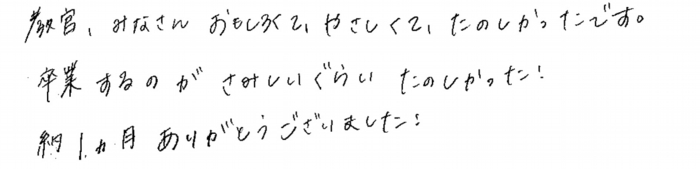 教官、みなさん おもしろくて、やさしくて、たのしかったです。
卒業するのが さみしいぐらい たのしかった!
約1ヵ月 ありがとうございました!